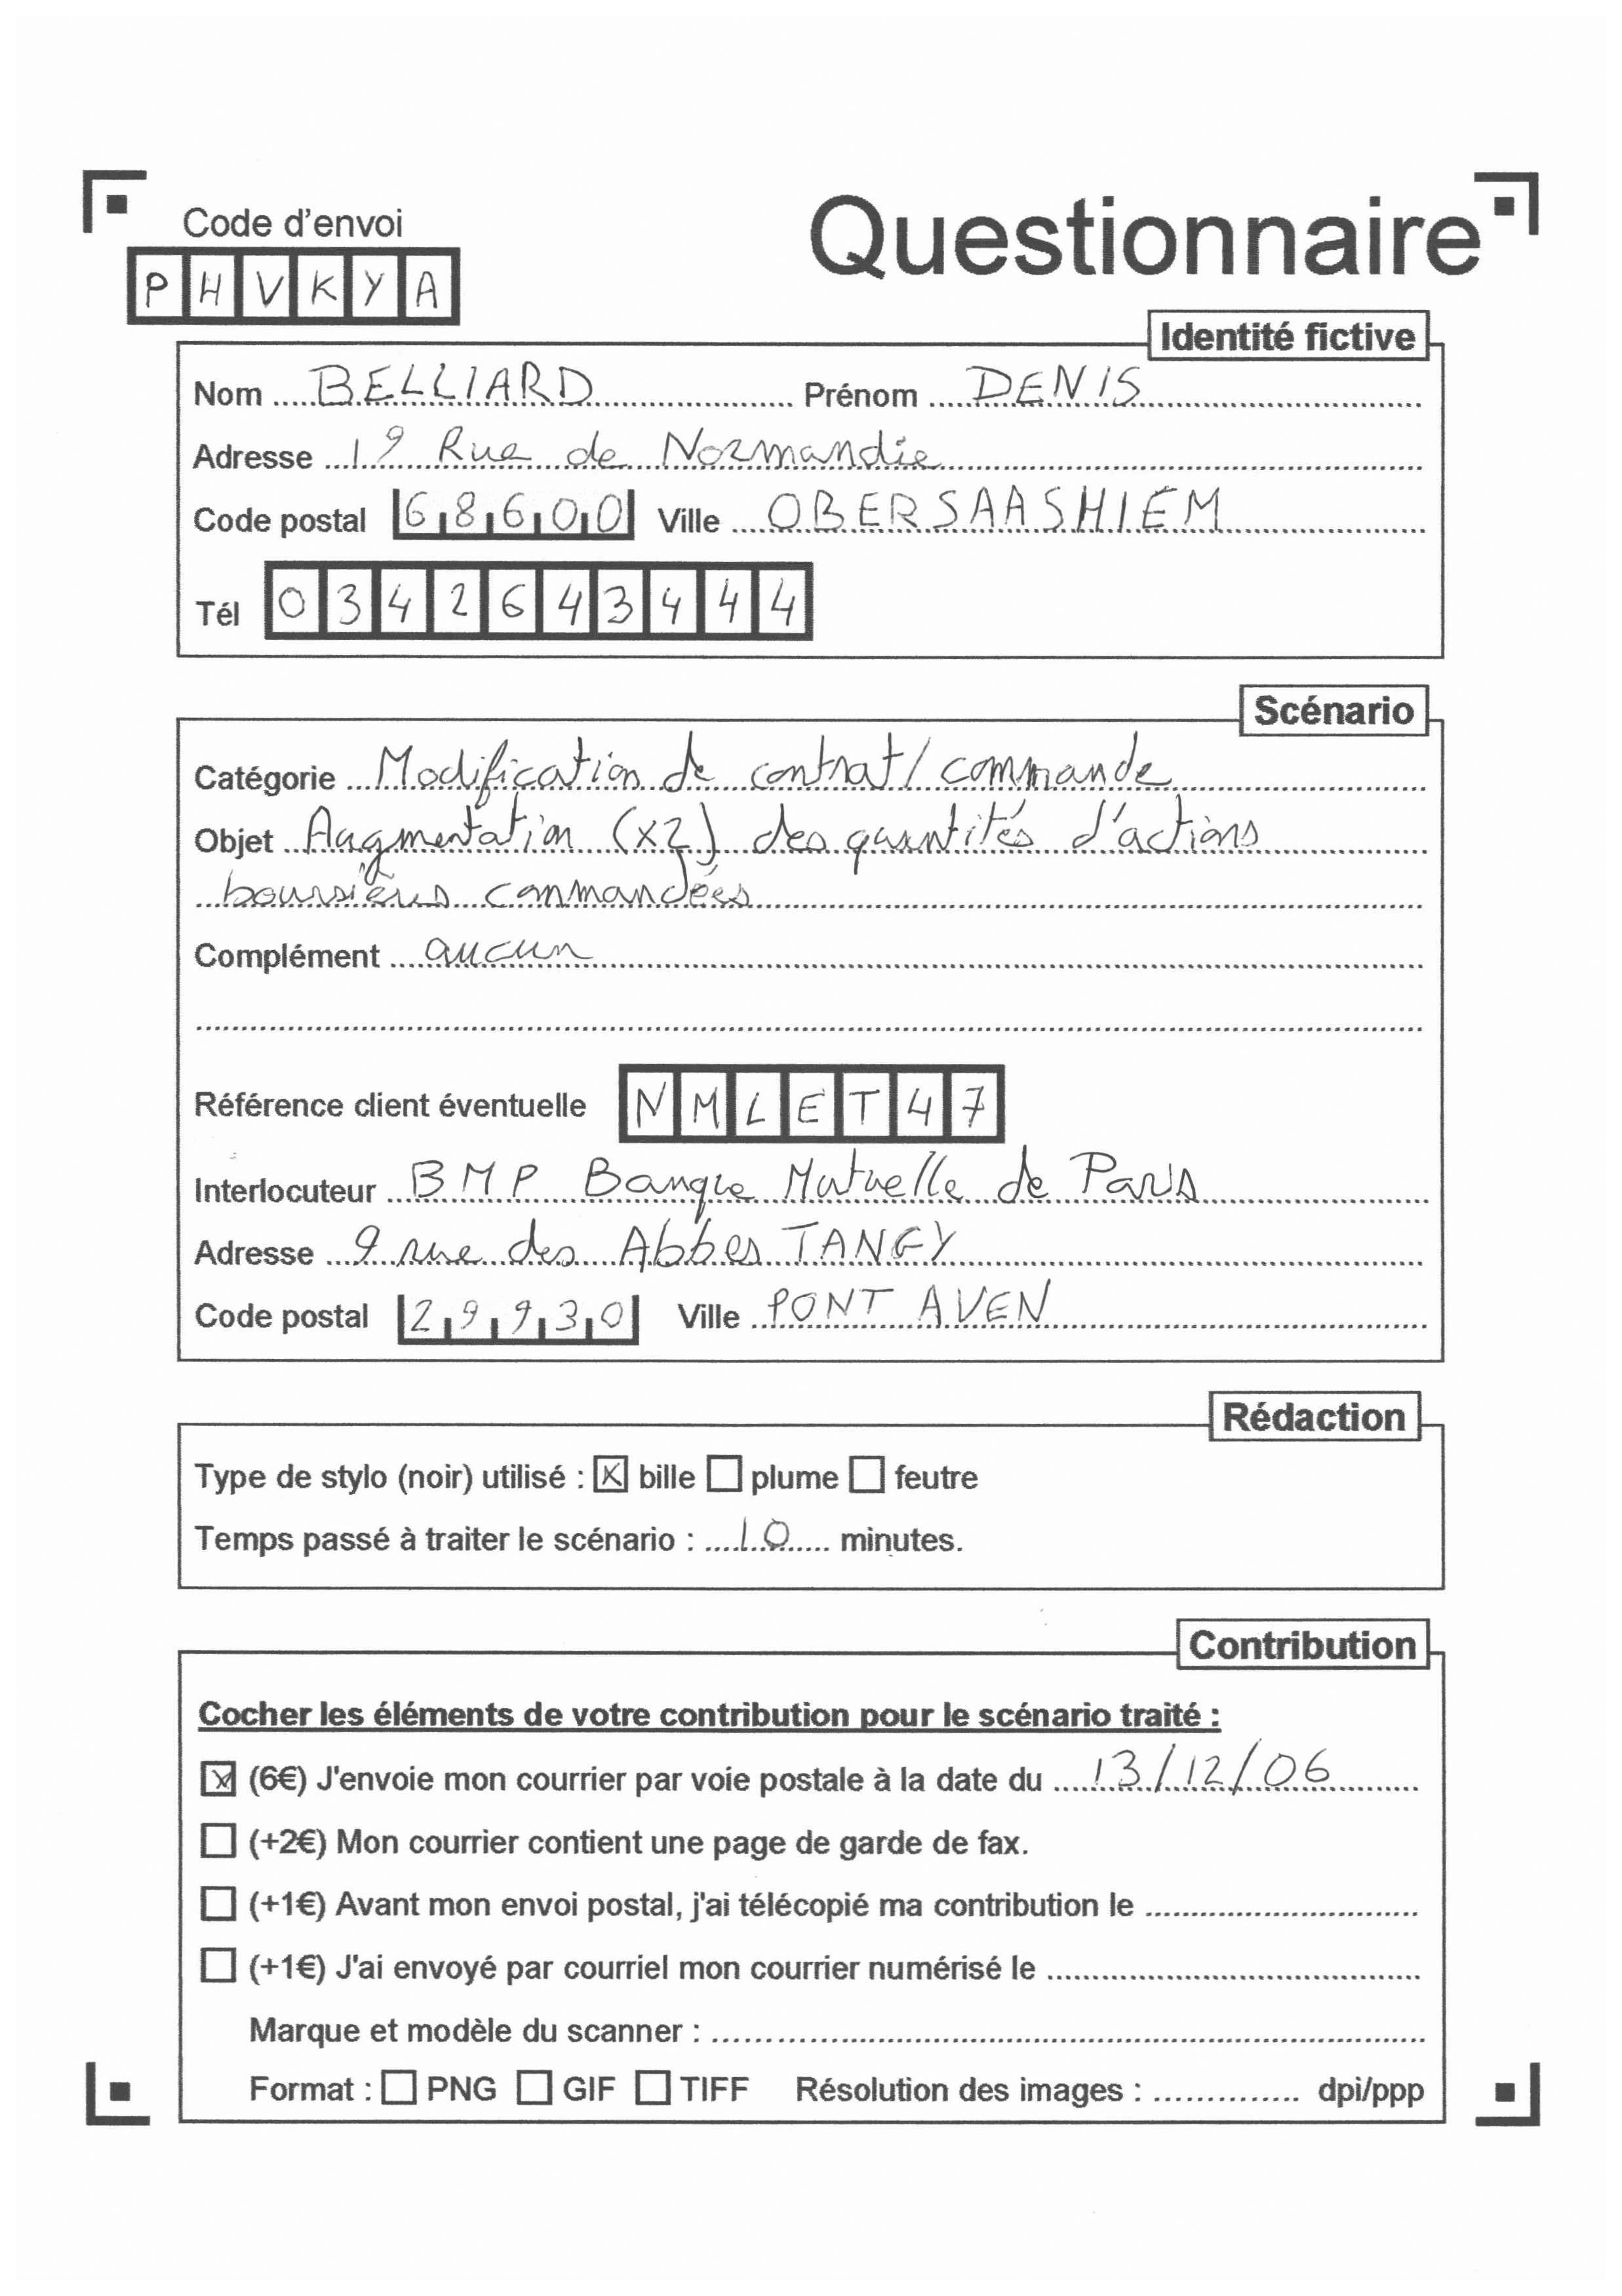 Questionnaire
Code d'envoi
PHVKYA
Identité fictive
Nom BELLIARD Prénom DENIS
Adresse 19 Rue de Normandie
Code postal 68600 Ville OBERSAASHIEM
Tél 0342643444
Scénario
Catégorie Modification de contrat/commande
Objet Augmentation (x2) des quantités d'actions
boursières commandées
Complément aucun
Référence client éventuelle NMLET47
Interlocuteur BMP Banque Mutuelle de Paris
Adresse 9 rue des Abbes TANGY
Code postal 29930 Ville PONT AVEN
Rédaction
Type de stylo (noir) utilisé : bille plume feutre
Temps passé à traiter le scénario : 10 minutes.
Contribution
Cocher les éléments de votre contribution pour le scénario traité :
(6€) J'envoie mon courrier par voie postale à la date du 13/12/06
(+2€) Mon courrier contient une page de garde de fax.
(+1€) Avant mon envoi postal, j'ai télécopié ma contribution le
(+1€) J'ai envoyé par courriel mon courrier numérisé le
Marque et modèle du scanner :
Format : PNG GIF TIFF Résolution des images : dpi/ppp